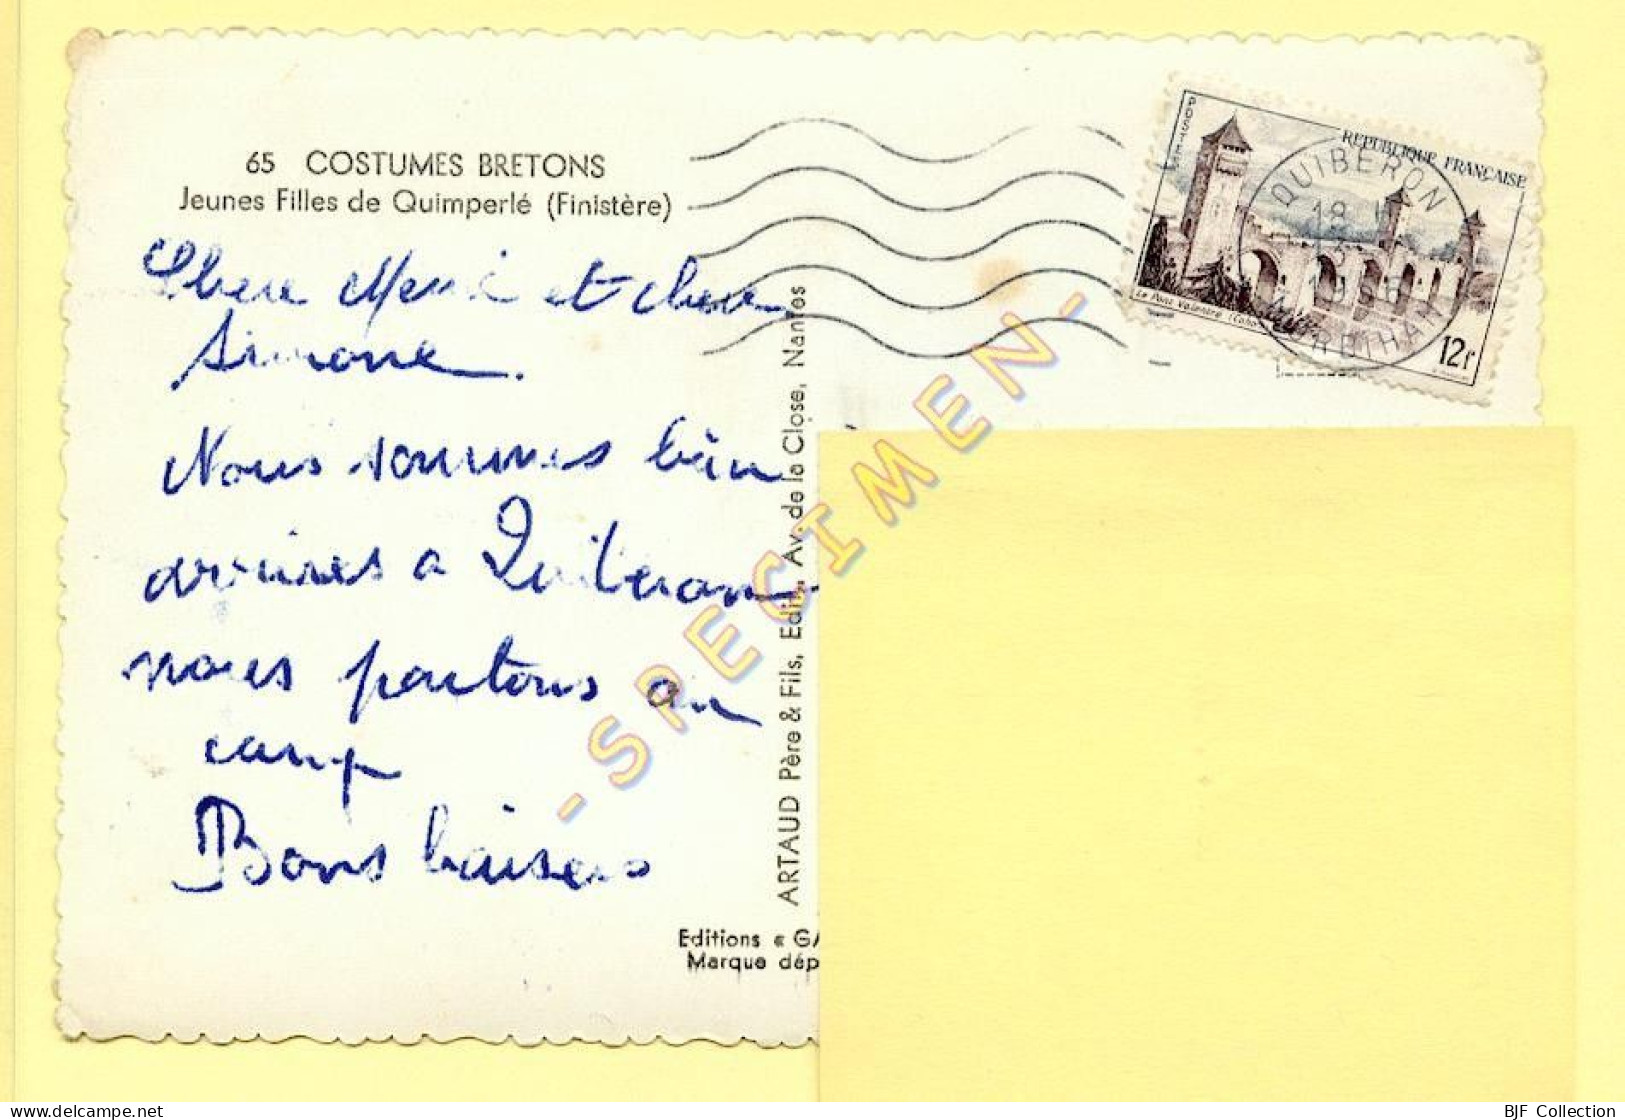 65 COSTUMES BRETONS
Jeunes Filles de Quimperlé (Finistère)
Chère et chère
Simone.
Nous sommes bien
arrivées a Quiberon
nous partons au
camp
Bons baisers
ARTAUD Père & Fils, Edit., Av. de la Close, Nantes
Editions « GA
Marque dép
POSTES
REPUBLIQUE FRANÇAISE
Le Pont Valentré (Caho
12f
QUIBERON
18
MORBIHAN
- SPECIMEN -
delcampe.net
BJF Collection